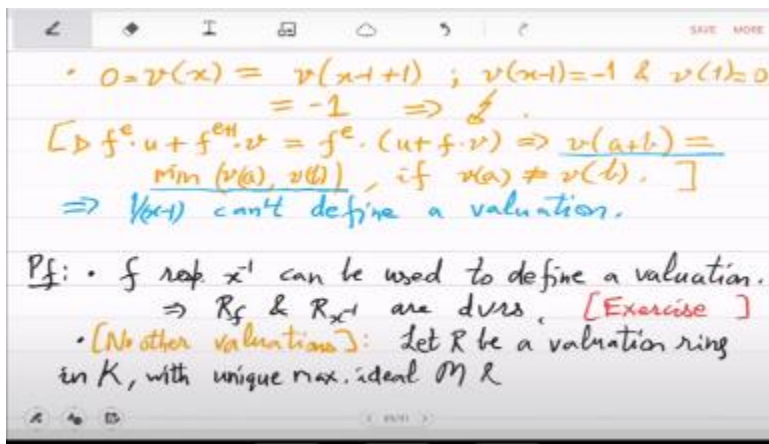 SAVE MORE
· 0=v(x) = v(x-1+1) ; v(x-1)=-1 & v(1)=0
= -1 ⇒ ↯.
[▷ f^e·u + f^{e+1}·v = f^e·(u+f·v) ⇒ v(a+b) =
min (v(a), v(b)), if v(a) ≠ v(b). ]
⇒ 1/(x-1) can't define a valuation.
Pf: · f resp. x^{-1} can be used to define a valuation.
⇒ R_f & R_{x^{-1}} are dvrs. [Exercise ]
· [No other valuations]: Let R be a valuation ring
in K, with unique max. ideal M &